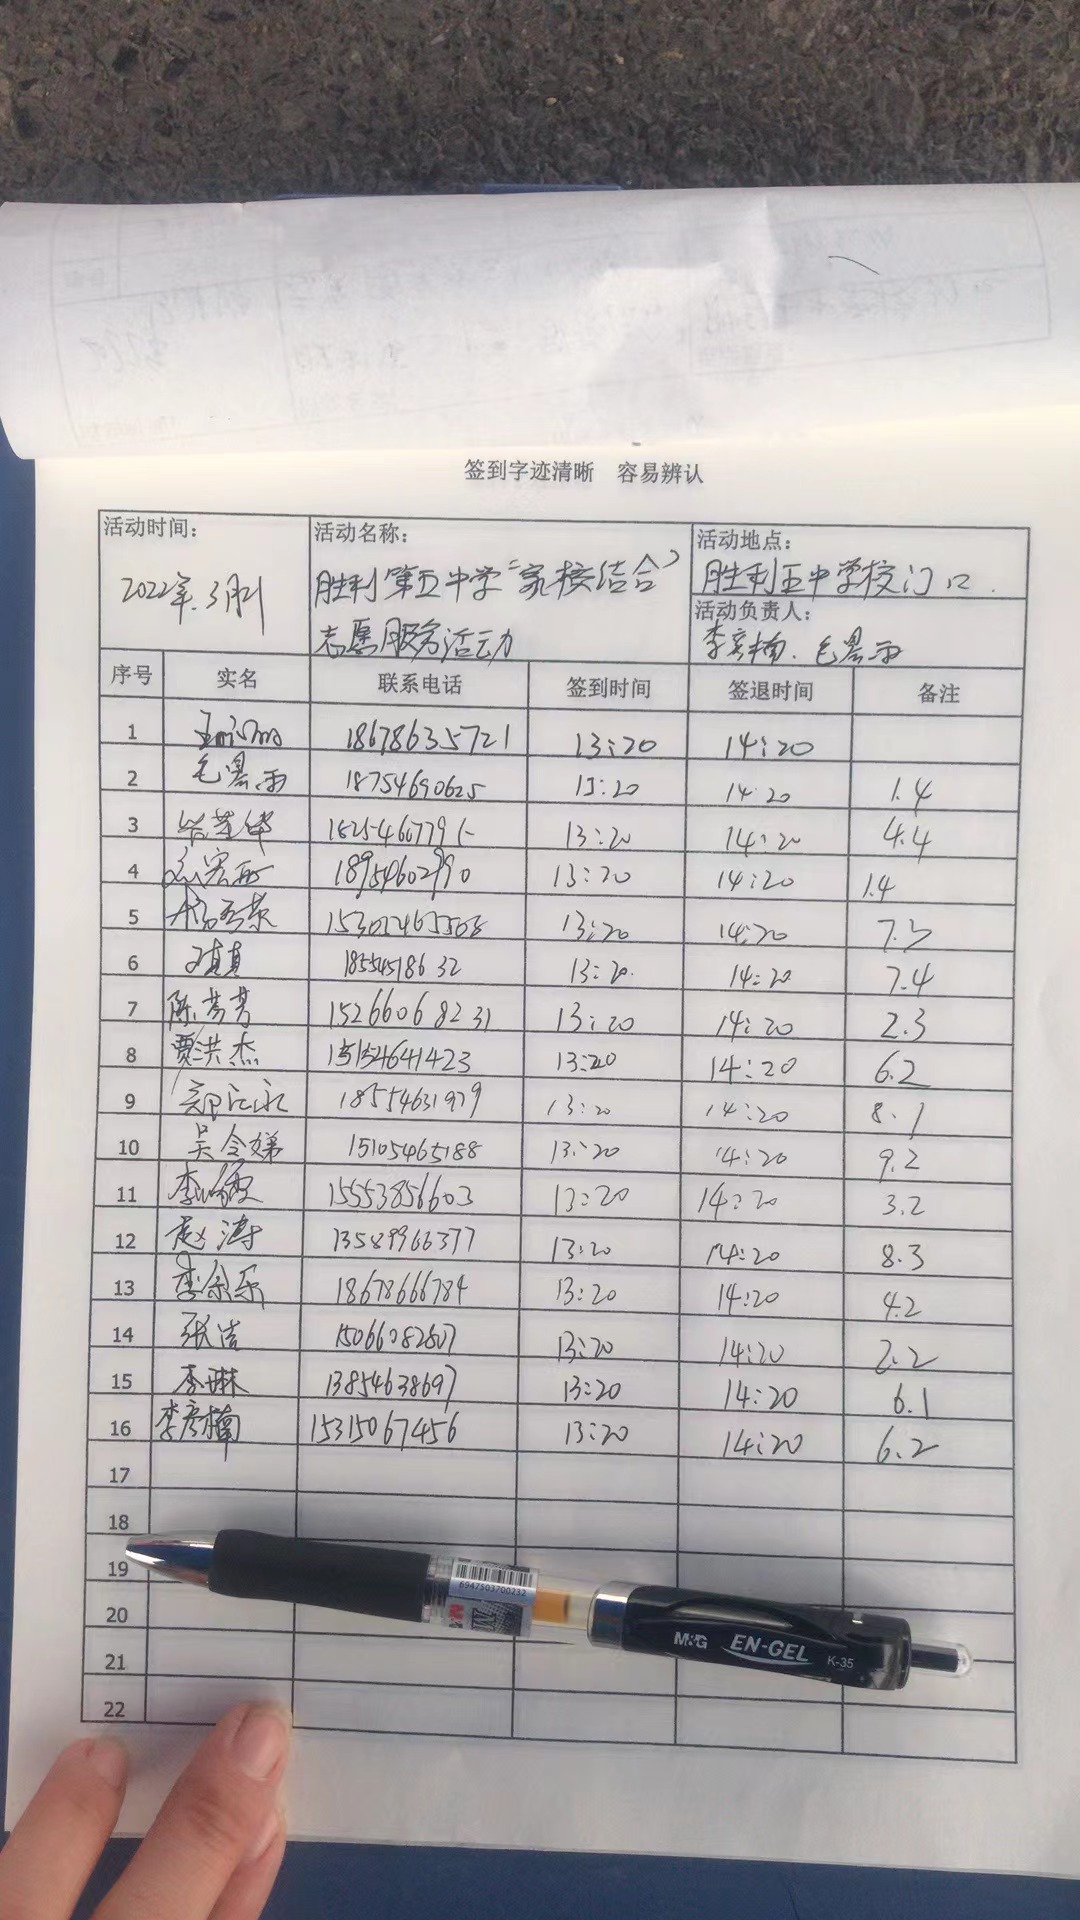 签到字迹清晰 容易辨认
活动时间: 活动名称: 活动地点:
2022年.3月21 胜利第五中学"家校结合" 胜利五中学校门口.
志愿服务活动
活动负责人:
李彦楠.毛暑雨
序号 实名 联系电话 签到时间 签退时间 备注
1 18678635721 13:20 14:20
2 毛暑雨 18754690625 13:20 14:20 1.4
3 13:20 14:20 4.4
4 18954602990 13:20 14:20 1.4
5 13:20 14:20 7.3
6 13:20. 14:20 7.4
7 陈芳芳 15266068231 13:20 14:20 2.3
8 贾洪杰 15154641423 13:20 14:20 6.2
9 18554631979 13:20 14:20 8.1
10 吴令娣 15105465188 13:20 14:20 9.2
11 15553856603 13:20 14:20 3.2
12 赵涛 13589966377 13:20 14:20 8.3
13 18678666784 13:20 14:20 4.2
14 张洁 15066082607 13:20 14:20 2.2
15 李琳 13854638697 13:20 14:20 6.1
16 李彦楠 15315067456 13:20 14:20 6.2
17
18
19
20
21
22
6947503700232
M&G EN-GEL K-35